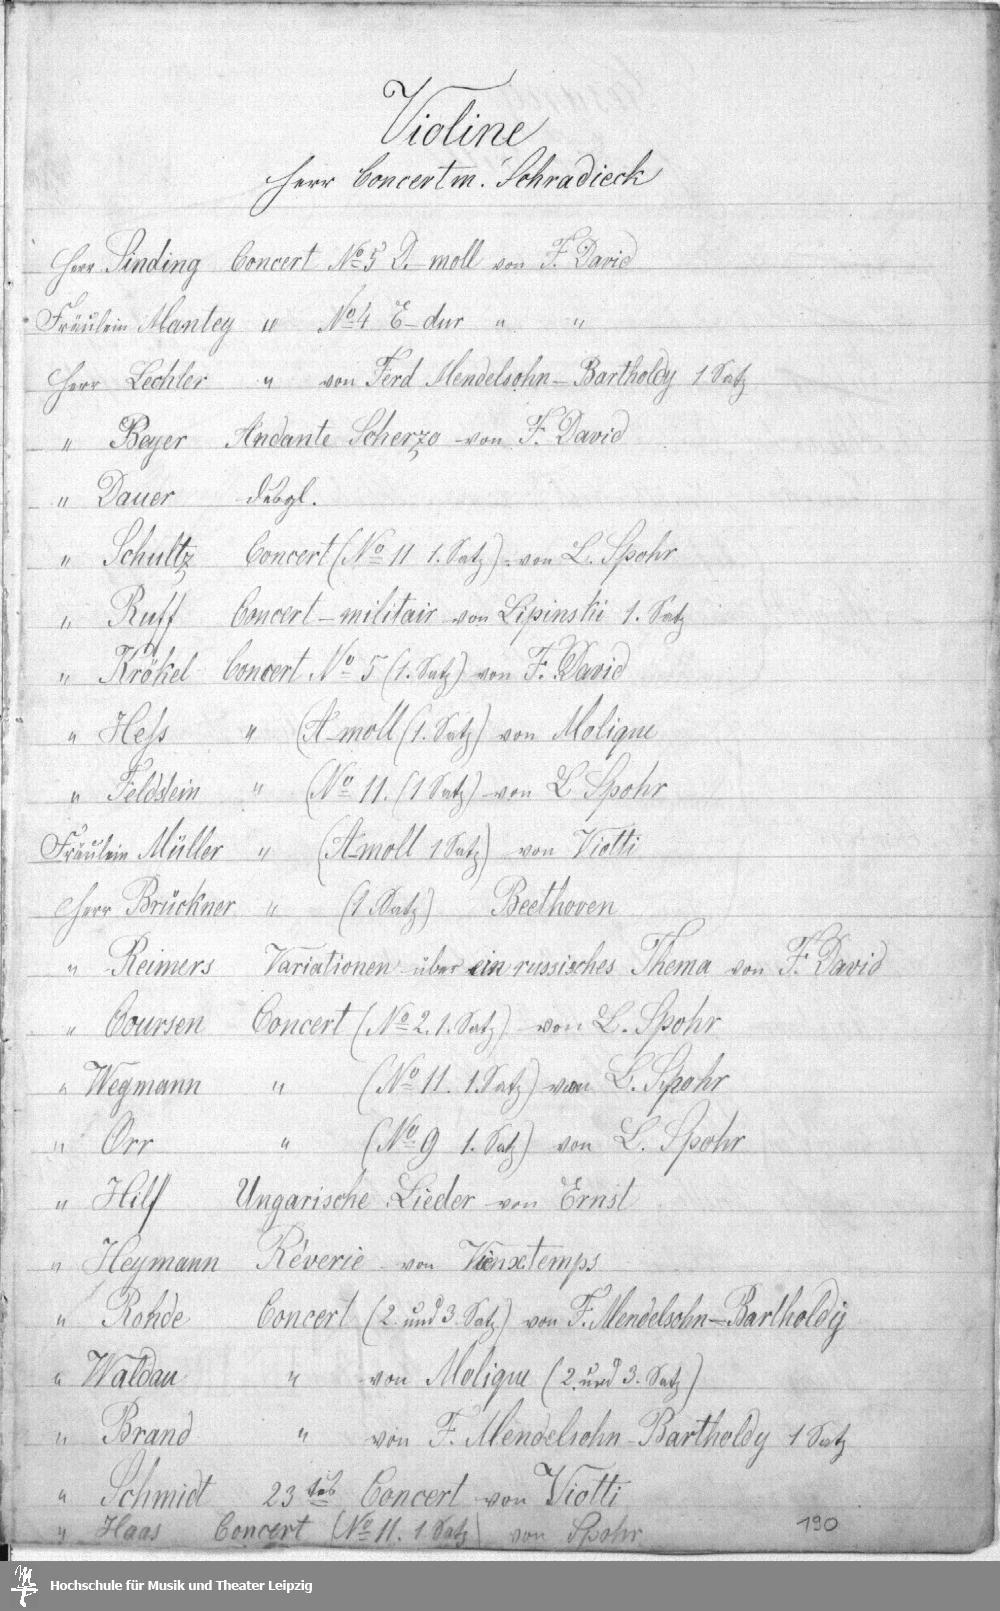 Violine
Herr Concertm. Schradieck
Herr Sinding Concert No 5 D. moll von F. David
Fräulein Mantey " No 4 E-dur " "
Herr Lechler " von Ferd Mendelsohn-Bartholdy 1 Satz
" Beyer Andante Scherzo von F. David
" Dauer desgl.
" Schultz Concert (No 11 1. Satz) von L. Spohr
" Ruff Concert-militair von Lipinski 1. Satz
" Krökel Concert No 5 (1. Satz) von F. David
" Hess " (A-moll (1. Satz) von Molique
" Feldstein " (No 11. (1 Satz) von L Spohr
Fräulein Müller " (A-moll 1 Satz) von Viotti
Herr Brückner " (1 Satz) Beethoven
" Reimers Variationen über ein russisches Thema von F. David
" Coursen Concert (No 2. 1. Satz) von L. Spohr
" Wegmann " (No 11. 1. Satz) von L. Spohr
" Orr " (No 9 1. Satz) von L. Spohr
" Hilf Ungarische Lieder von Ernst
" Heymann Rêverie von Vieuxtemps
" Rohde Concert (2. und 3. Satz) von F. Mendelsohn-Bartholdy
" Waldau " von Molique (2. und 3. Satz)
" Brand " von F. Mendelsohn-Bartholdy 1 Satz
" Schmidt 23 tes Concert von Viotti
" Haas Concert (No 11. 1. Satz) von Spohr
190
Hochschule für Musik und Theater Leipzig